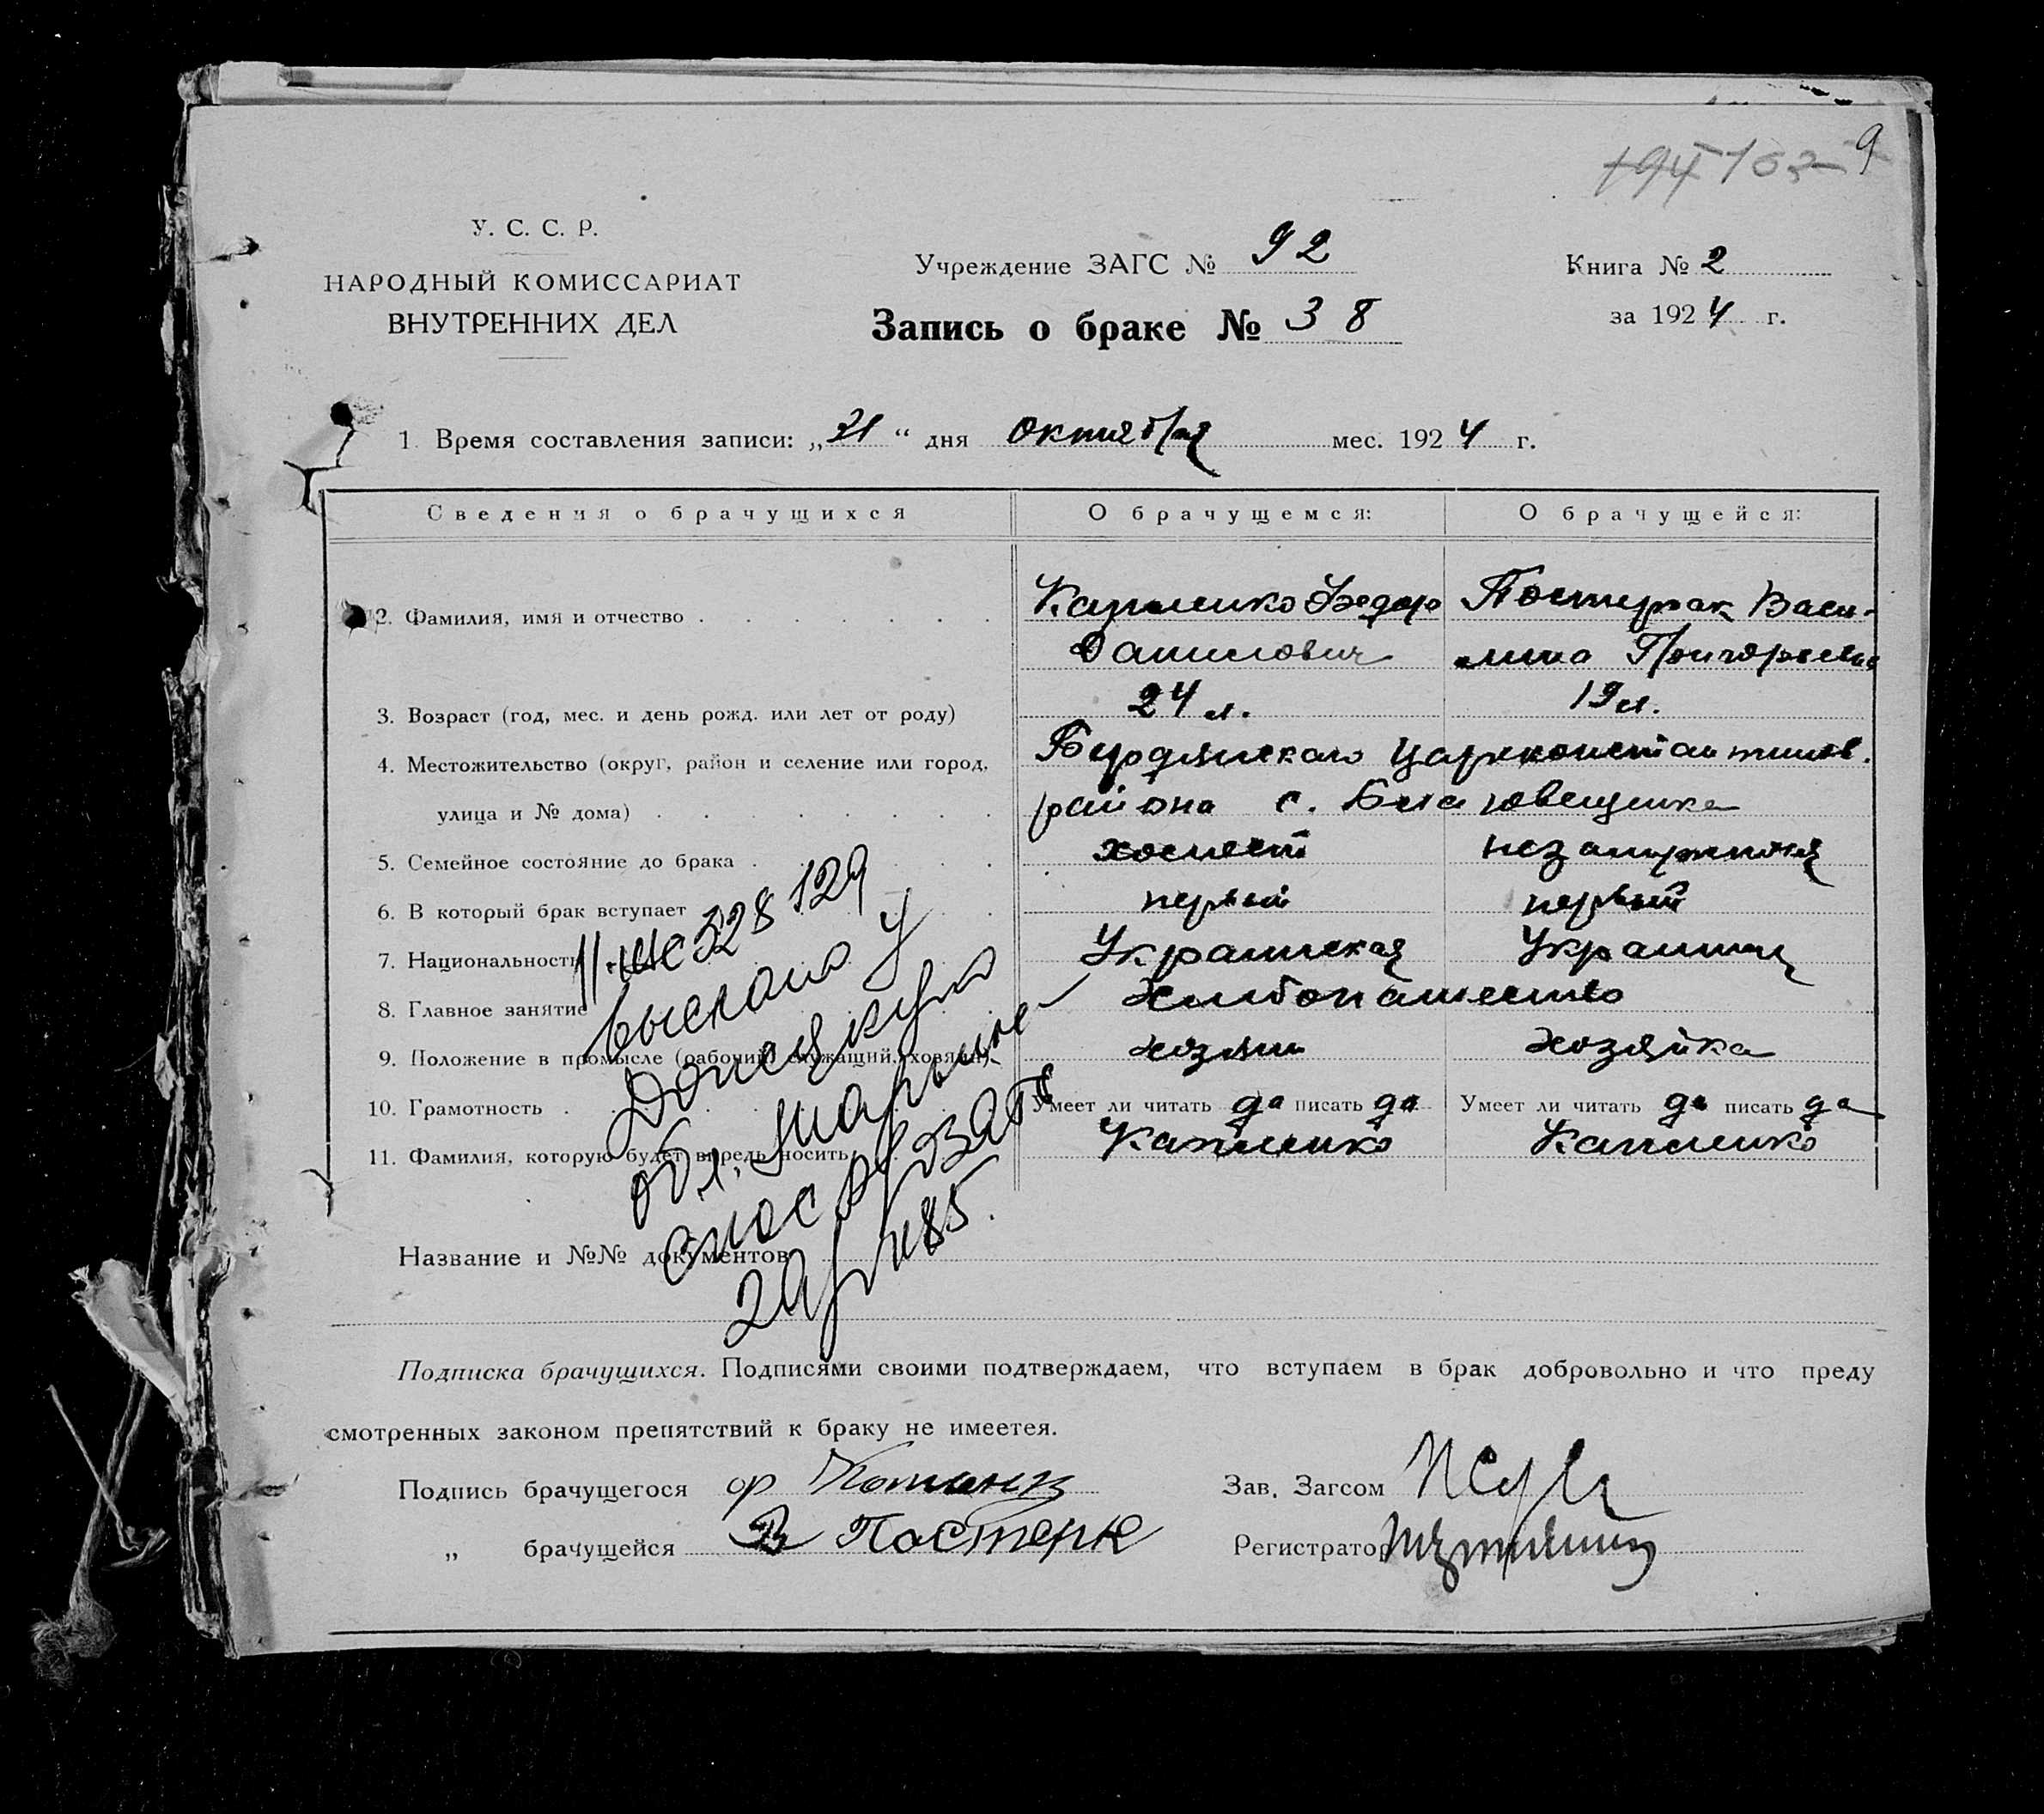 9
У. С. С. Р.
НАРОДНЫЙ КОМИССАРИАТ
ВНУТРЕННИХ ДЕЛ
Учреждение ЗАГС № 92
Запись о браке № 38
Книга № 2
за 1924 г.
1. Время составления записи: „21“ дня октября мес. 1924 г.
Сведения о брачущихся О брачущемся: О брачущейся:
2. Фамилия, имя и отчество Капленко Федор Постерпак Васи-
Данилович лина Григорьевна
3. Возраст (год, мес. и день рожд. или лет от роду) 24 л. 19 л.
4. Местожительство (округ, район и селение или город, Бердянского Царконстантинов.
улица и № дома) района с. Благовещенка
5. Семейное состояние до брака холост незамужняя
6. В который брак вступает первый первый
7. Национальность Украинская Украинка
8. Главное занятие Хлибопашество
9. Положение в промысле (рабочий, служащий, хозяин) хозяин хозяйка
10. Грамотность Умеет ли читать да писать да Умеет ли читать да писать да
11. Фамилия, которую будет впредь носить Капленко Капленко
328129
выслано у
Донецкую
обл. Марьинс
ЗАГС
85.
Название и №№ документов
Подписка брачущихся. Подписями своими подтверждаем, что вступаем в брак добровольно и что преду
смотренных законом препятствий к браку не имеетея.
Подпись брачущегося ф
Зав. Загсом
„ брачущейся В Постерпк
Регистратор